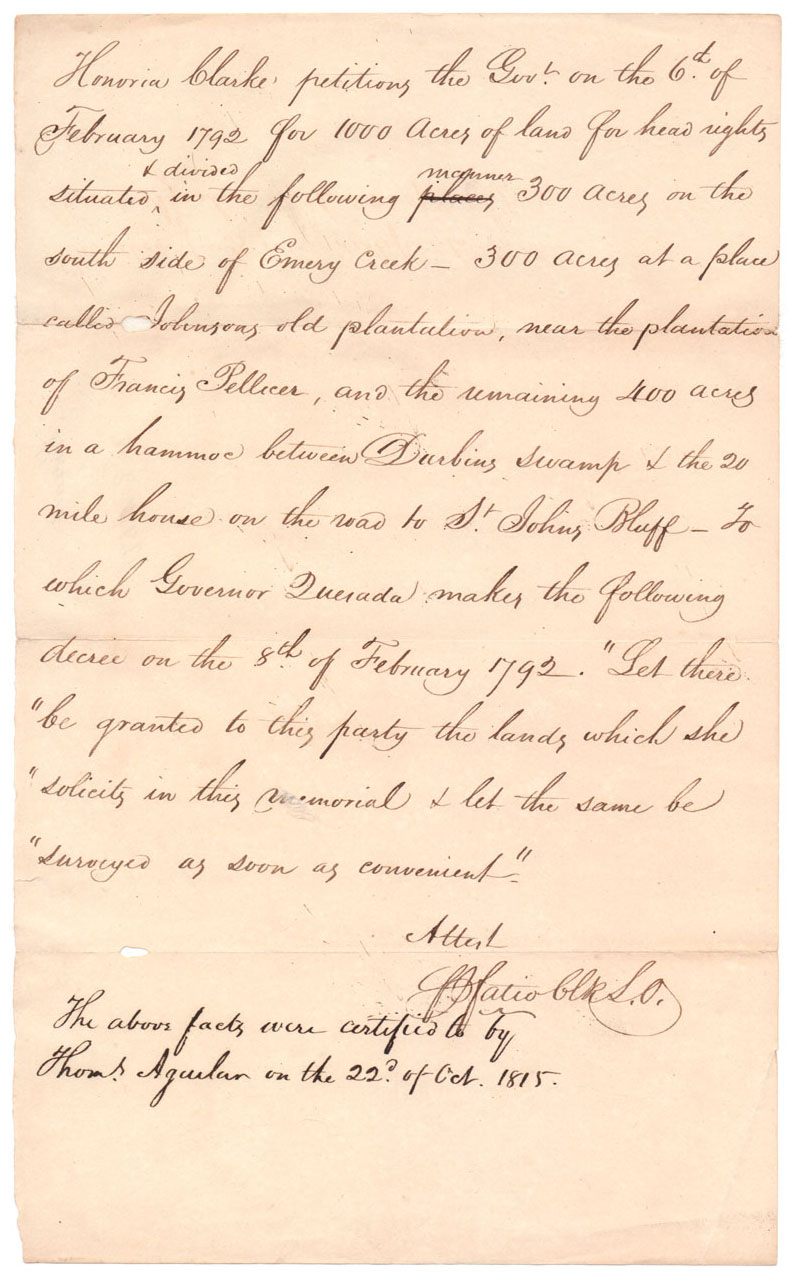 Honoria Clarke petitions the Govt. on the 6th. of
February 1792 for 1000 Acres of land for head rights
& divided manner
situated in the following places 300 acres on the
south side of Emery Creek – 300 acres at a place
called Johnsons old plantation, near the plantation
of Francis Pellicer, and the remaining 400 acres
in a hammoc between Durbins swamp & the 20
mile house on the road to St. Johns Bluff – To
which Governor Quesada makes the following
decree on the 8th. of February 1792. "Let there
"be granted to this party the lands which she
"solicits in this memorial & let the same be
"surveyed as soon as convenient"
Attest
Fatio Clk L.O.
The above facts were certified to by
Thoms. Aguilar on the 22d. of Oct. 1815.